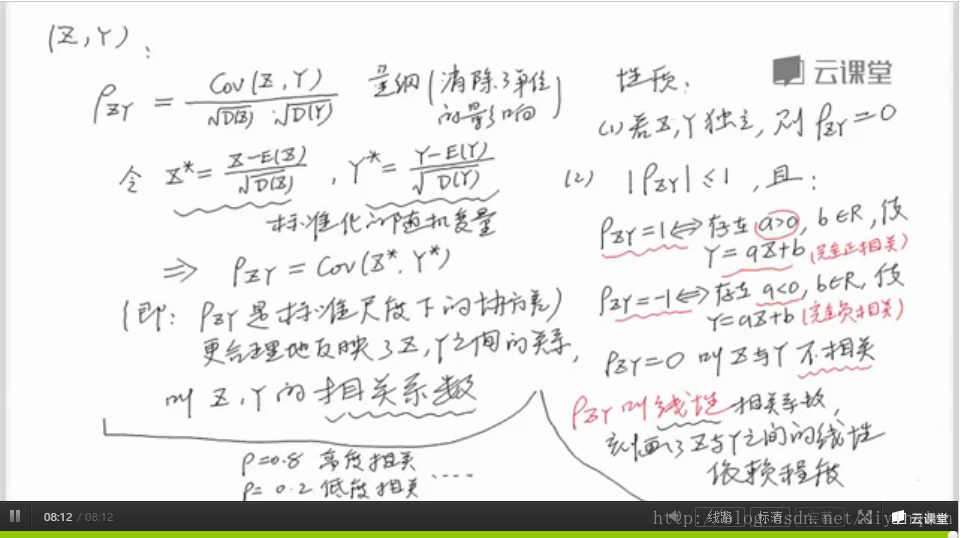 (X, Y):
ρXY = Cov(X, Y) / √D(X) · √D(Y) 量纲(消除了单位的影响)
令 X* = X-E(X) / √D(X) , Y* = Y-E(Y) / √D(Y)
标准化的随机变量
⇒ ρXY = Cov(X*, Y*)
(即: ρXY是标准尺度下的协方差)
更合理地反映了X, Y之间的关系,
叫 X, Y的相关系数
ρ=0.8 高度相关
ρ=0.2 低度相关 ....
云课堂
性质:
(1) 若X,Y独立, 则ρXY=0
(2) |ρXY|≤1, 且:
ρXY=1⇔存在a>0, b∈R, 使
Y=aX+b (完全正相关)
ρXY=-1⇔存在a<0, b∈R, 使
Y=aX+b (完全负相关)
ρXY=0 叫X与Y不相关
ρXY叫线性相关系数,
刻画了X与Y之间的线性
依赖程度
08:12 / 08:12
线路 标清 字幕 云课堂